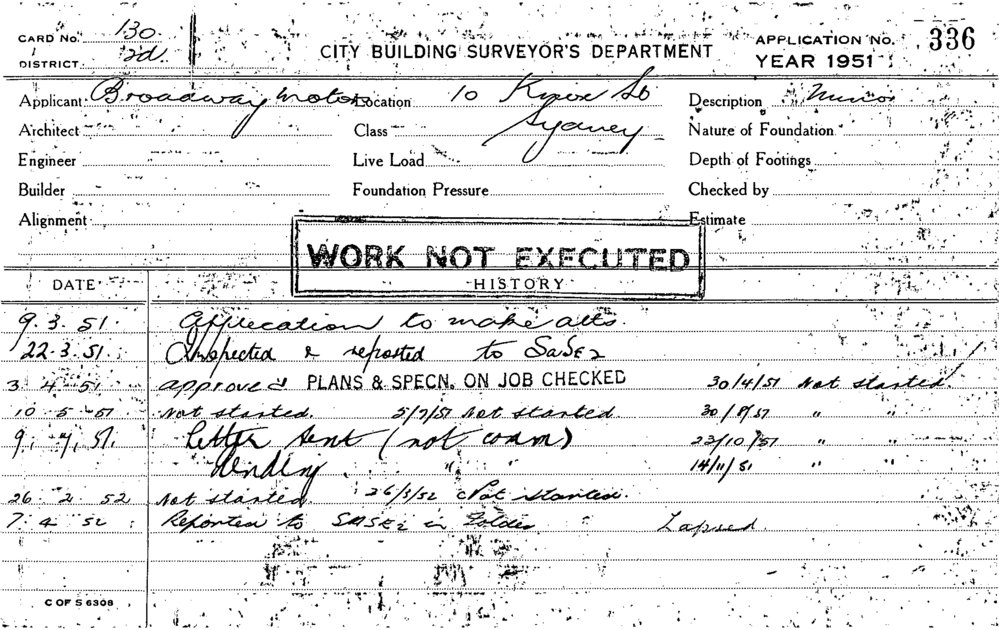 CARD No. 130
DISTRICT. 2d.
CITY BUILDING SURVEYOR'S DEPARTMENT
APPLICATION No. 336
YEAR 1951
Applicant Broadway Motors Location 10 Knox St Description Minor
Architect Class Sydney Nature of Foundation
Engineer Live Load Depth of Footings
Builder Foundation Pressure Checked by
Alignment Estimate
WORK NOT EXECUTED
DATE HISTORY
9.3.51. Application to make alts.
22.3.51. Inspected & reported to
3 4 51 approved PLANS & SPECN. ON JOB CHECKED 30/4/51 Not started.
10 5 51 Not started. 5/7/51 Not started 30/8/51 " "
9. 7. 51. letter sent (not comm) 23/10/51 " "
Pending. " " 14/11/51 " "
26 2 52 Not started. 26/3/52 Not started.
7 4 52 Reported to in Folder Lapsed
C OF S 6308